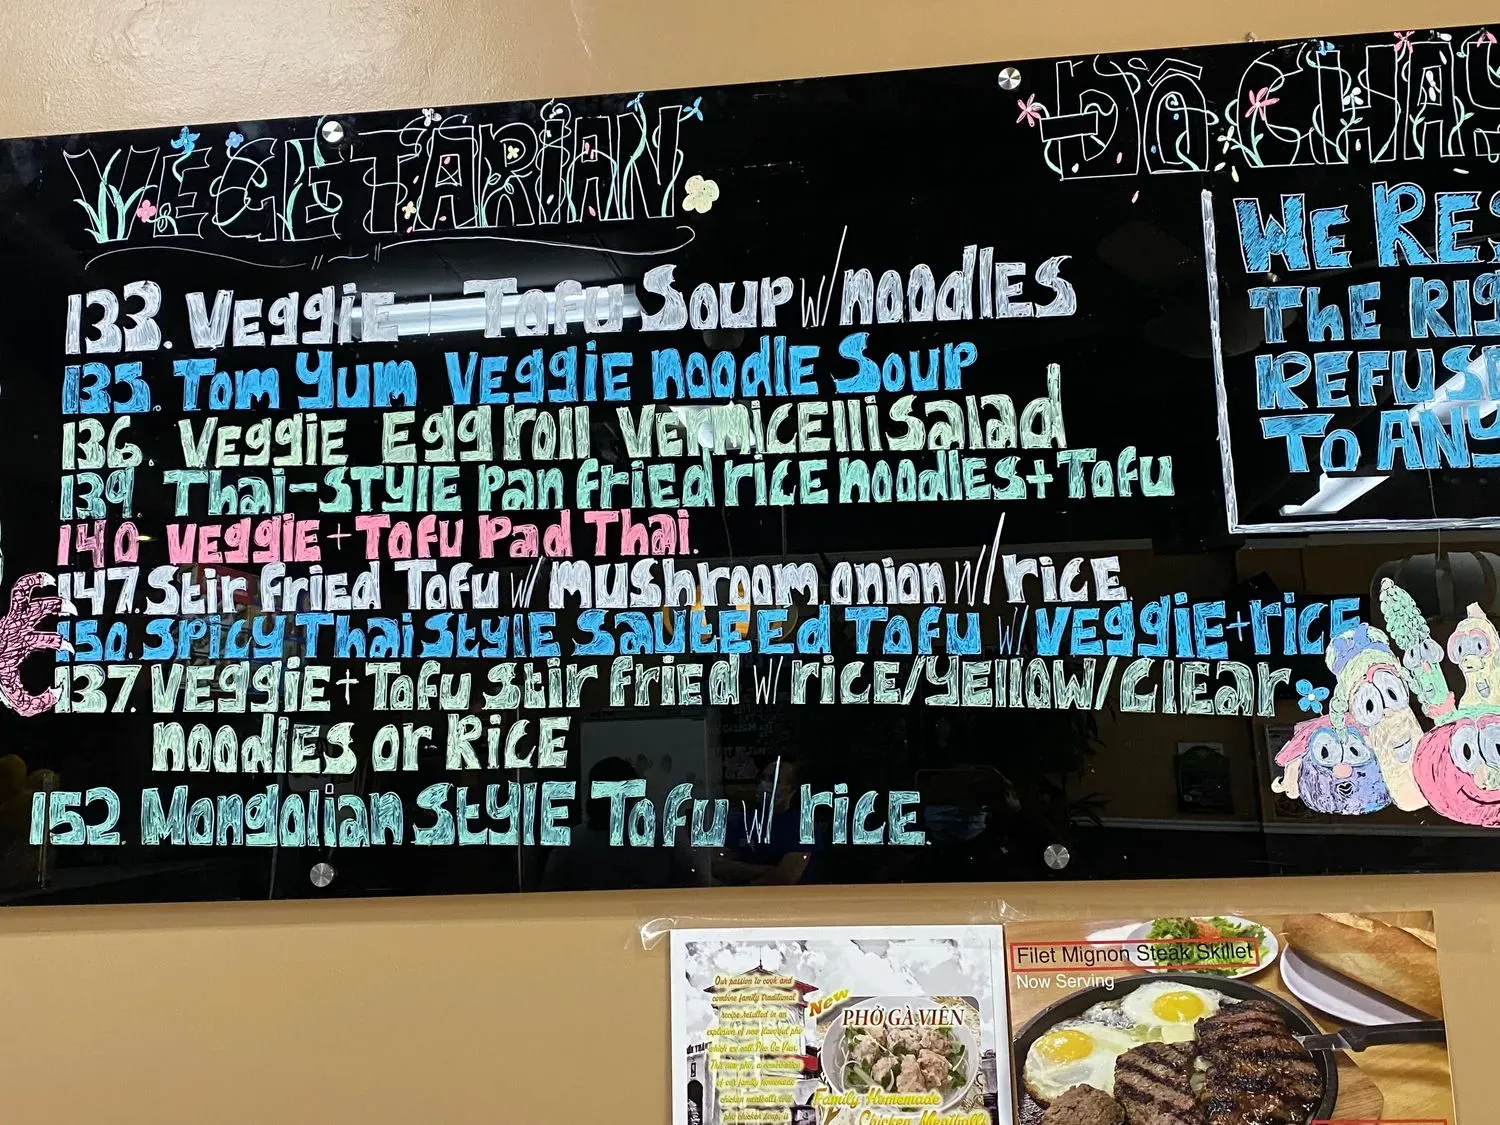 VEGETARIAN
ĐỒ CHAY
133. Veggie Tofu Soup w/ noodles
135. Tom Yum Veggie noodle Soup
136. Veggie Egg roll vermicelli Salad
139. Thai-STYLE pan fried rice noodles + Tofu
140 Veggie + Tofu Pad Thai.
147. Stir fried Tofu w/ mushroom onion w/ rice
150. Spicy Thai Style SauteEd Tofu w/ veggie + rice
137. Veggie + Tofu Stir fried w/ rice/yellow/clear
noodles or Rice
152. Mongolian Style Tofu w/ rice.
We RES
The RIG
REFUS
To ANY
Our passion to cook and
combine family traditional
recipe resulted in an
explosion of new flavorful pho
which we call Pho Ga Vien.
This new pho, a combination
of our family homemade
chicken meatballs and
pho chicken soup, is
New
PHỞ GÀ VIÊN
Family Homemade
Chicken Meatballs
Filet Mignon Steak Skillet
Now Serving